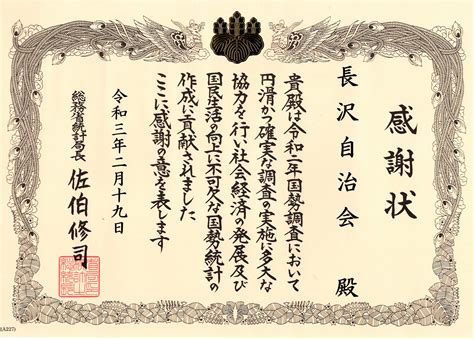 感謝状
長沢自治会 殿
貴殿は令和二年国勢調査において
円滑かつ確実な調査の実施に多大な
協力を行い社会経済の発展及び
国民生活の向上に不可欠な国勢統計の
作成に貢献されました
ここに感謝の意を表します
令和三年二月十九日
総務省統計局長 佐伯修司
(A227)